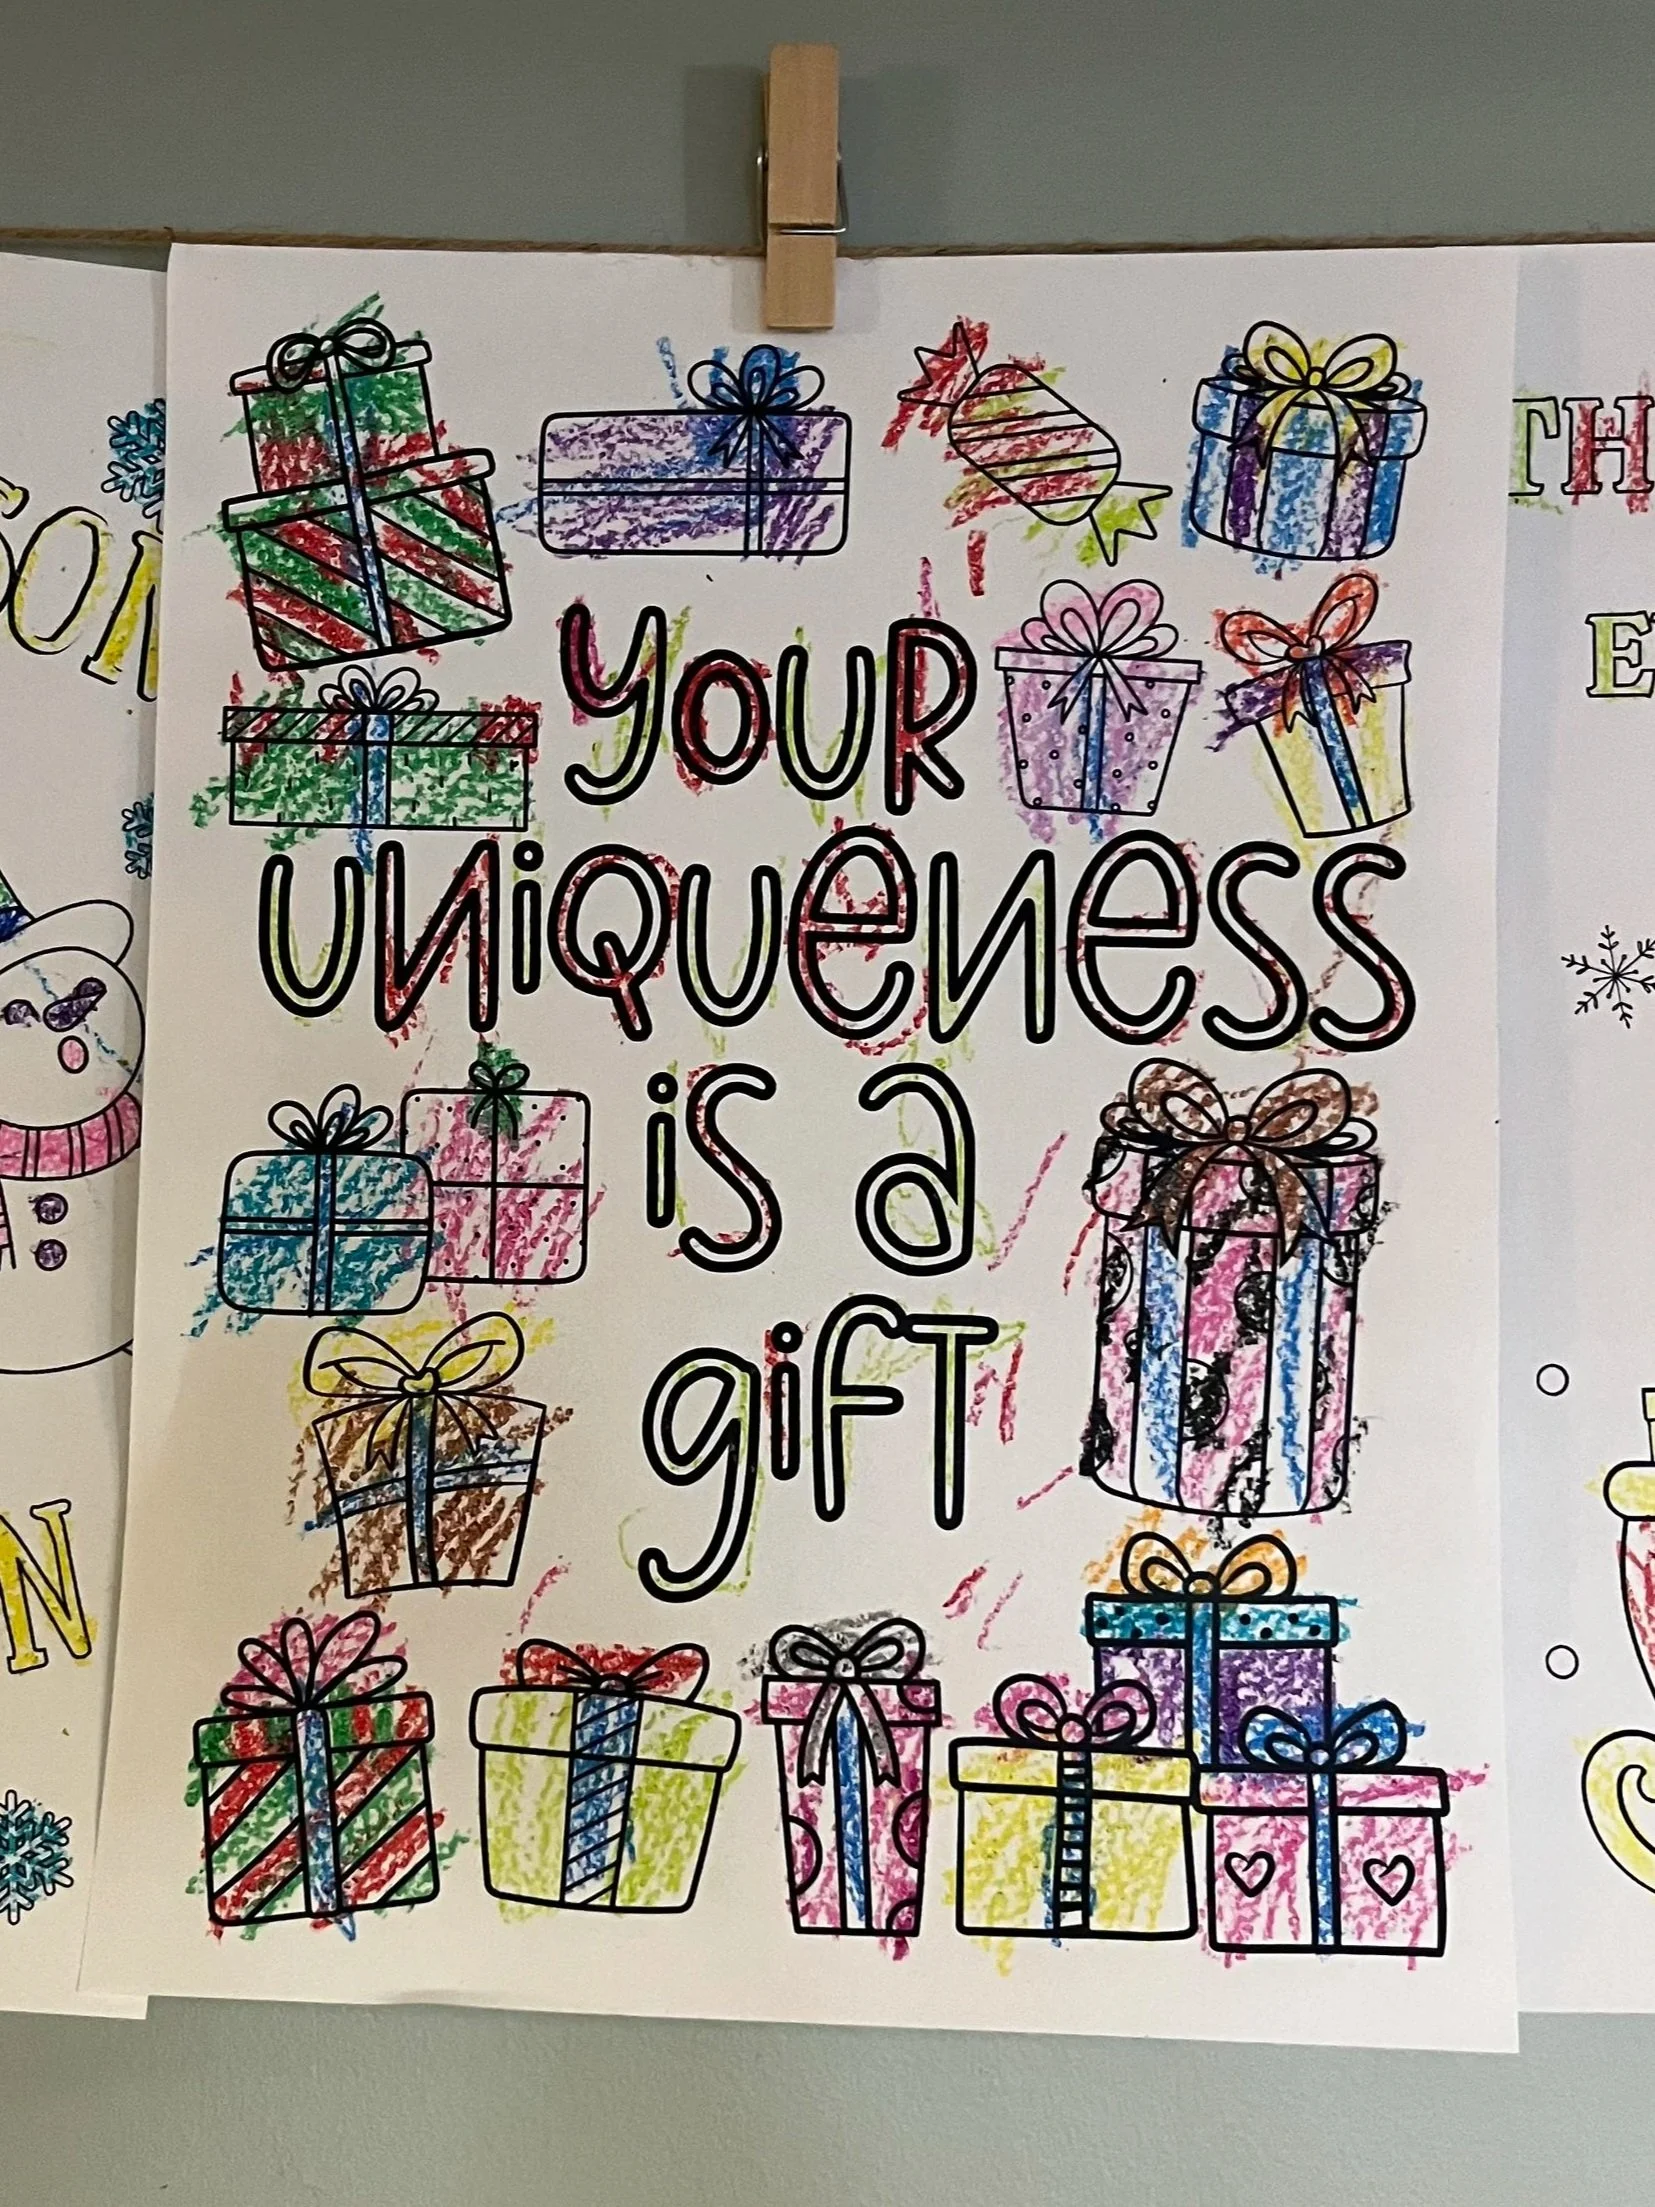 YOUR
UNIQUENESS
is a
giFT
SON
N
TH
E